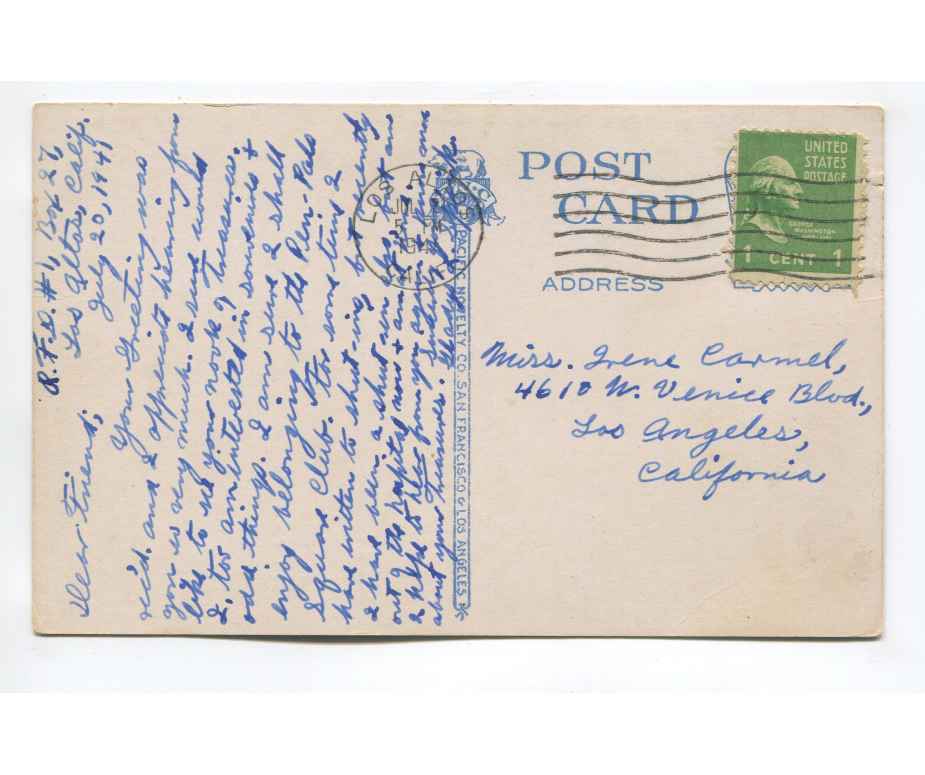 R.F.D. #1, Box 27,
Los Altos, Calif.
July 20, 1941
Dear Friend;
Your Greeting was
rec'd. and I appreciate hearing from
you so very much. I sure would
like to see your nook of treasures.
I, too am interested in souvenirs &
odd things. I am sure I shall
enjoy belonging to the Pen-Pals
Square Club. For some time I
have written to shut ins, but recently
I have been a shut in
out the hospital now & am
I hope to hear from you again
about your treasures.
PACIFIC NOVELTY CO. SAN FRANCISCO & LOS ANGELES
LOS ALTOS
JUL
CALIF.
POST
CARD
ADDRESS
UNITED
STATES
POSTAGE
GEORGE
WASHINGTON
1 CENT 1
Miss. Irene Carmel,
4610 W. Venice Blvd.,
Los Angeles,
California